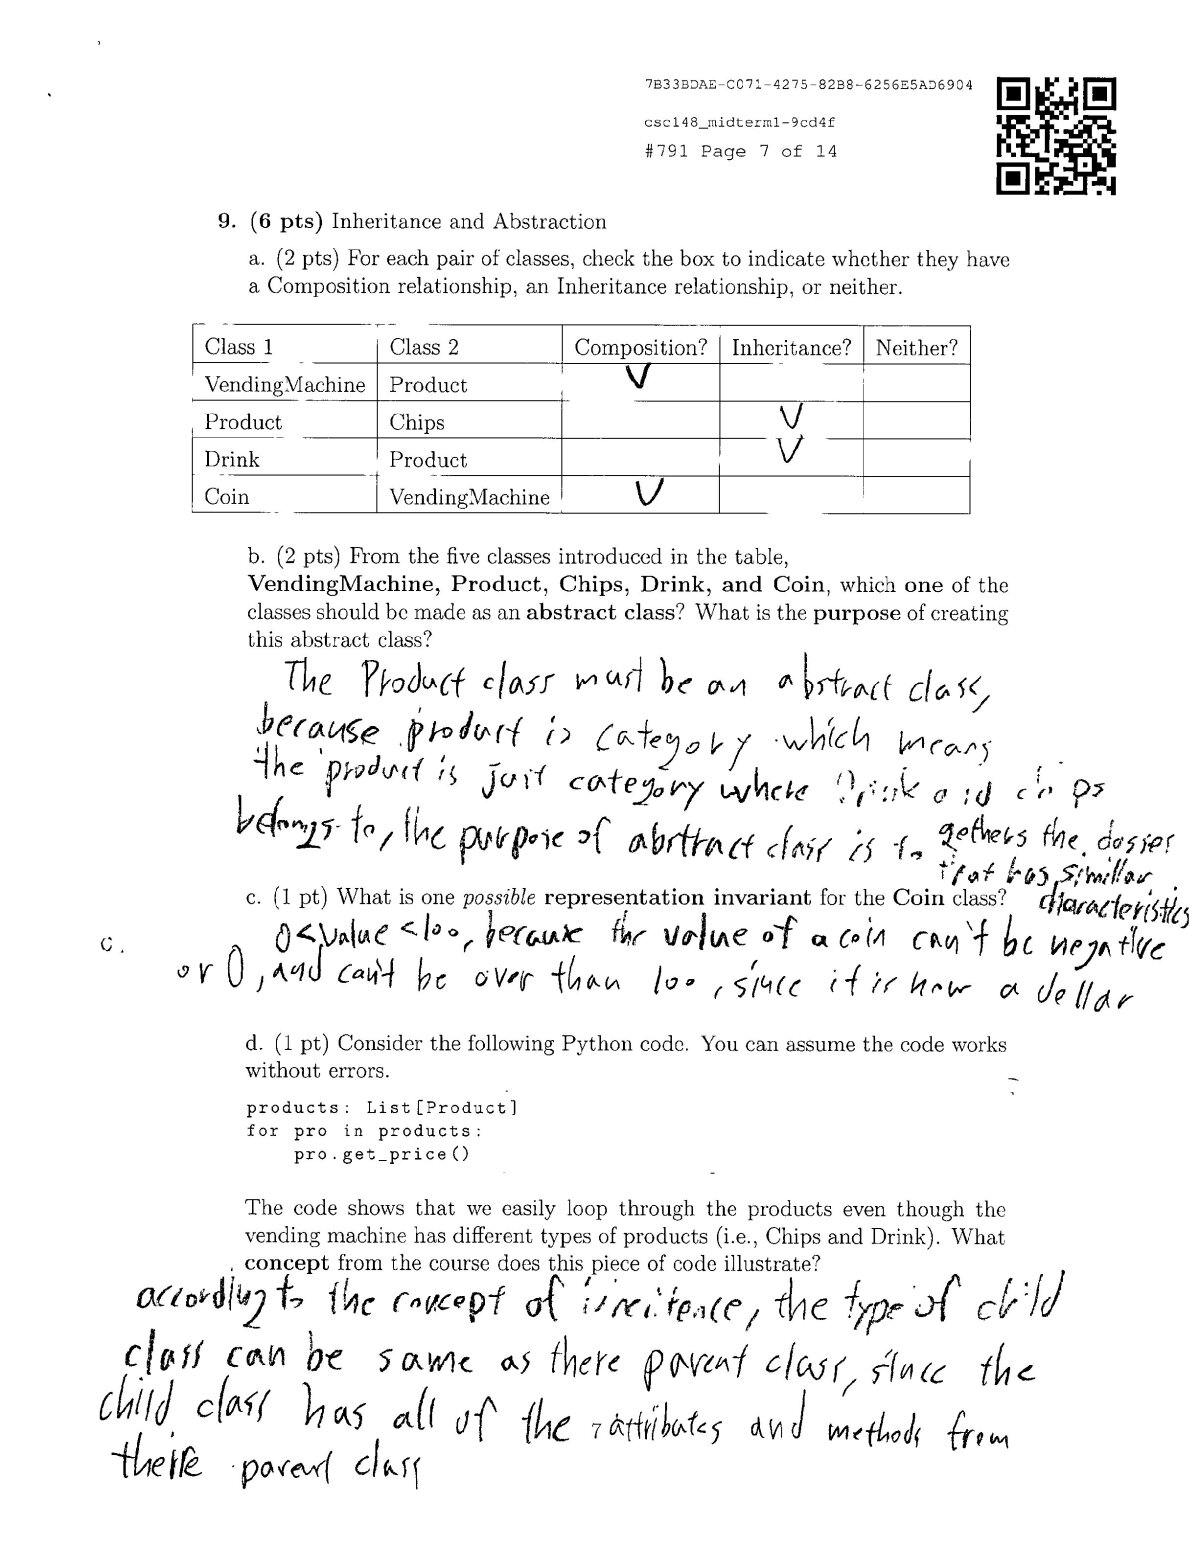 7B33BDAE-C071-4275-82B8-6256E5AD6904
csc148_midterm1-9cd4f
#791 Page 7 of 14
9. (6 pts) Inheritance and Abstraction
a. (2 pts) For each pair of classes, check the box to indicate whether they have
a Composition relationship, an Inheritance relationship, or neither.
Class 1 Class 2 Composition? Inheritance? Neither?
VendingMachine Product V
Product Chips V
Drink Product V
Coin VendingMachine V
b. (2 pts) From the five classes introduced in the table,
VendingMachine, Product, Chips, Drink, and Coin, which one of the
classes should be made as an abstract class? What is the purpose of creating
this abstract class?
The Product class must be an abstract class,
because product is category which means
the product is just category where Drink and chips
belongs to, the purpose of abstract class is to gethers the classes
that has simillar
c. (1 pt) What is one possible representation invariant for the Coin class? characteristics
c. 0<value<100, because the value of a coin can't be negative
or 0, and can't be over than 100, since it is now a dollar
d. (1 pt) Consider the following Python code. You can assume the code works
without errors.
products: List[Product]
for pro in products:
pro.get_price()
The code shows that we easily loop through the products even though the
vending machine has different types of products (i.e., Chips and Drink). What
concept from the course does this piece of code illustrate?
according to the concept of, the type of child
class can be same as there parent class, since the
child class has all of the attributes and methods from
theire parent class